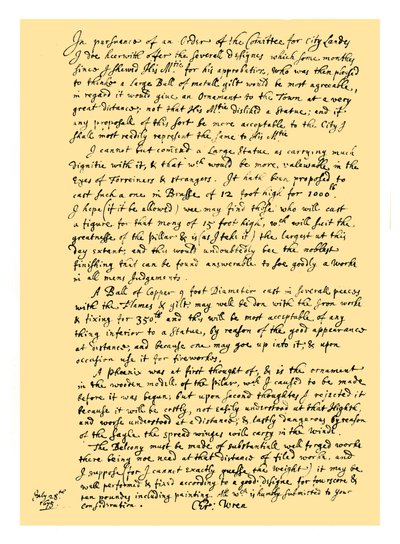 In pursuance of an Order of the Comittee for City Landes
I doe heerwith offer the severall designes which some monthes
since I shewed His Mtie for his approbation, who was then pleased
to thinke a large Ball of metall gilt would be most agreeable,
in regard it would give an Ornament to the Town at a very
great distance; not that His Mtie disliked a Statue; and if
any proposall of this sort be more acceptable to the City I
shall most readily represent the same to His Mtie
I cannot but comend a Large Statue as carrying much
dignitie with it, & that wch would be more valewable in the
Eyes of Forreiners & strangers. It hath been proposed to
cast such a one in Brasse of 12 foot high for 1000lb
I hope (if it be allowed) wee may find those who will cast
a figure for that mony of 15 foot high, wch will suit the
greatnesse of the pillar & is (as I take it) the largest at this
day extant; and this would undoubtedly bee the noblest
finishing that can be found answerable to soe goodly a worke
in all mens Judgements.
A Ball of Copper, 9 foot Diameter cast in severall peeces
with the Flames & gilt, may well be don with the Iron worke
& fixing for 350lb and this will be most acceptable of any
thing inferior to a Statue, by reason of the good appearance
at distance, and because one may goe up into it; & upon
occasion use it for fireworkes.
A Phœnix was at first thought of, & is the ornament
in the wooden modell of the pillar, wch I caused to be made
before it was begun; but upon second thoughtes I rejected it
because it will be costly, not easily understood at that Highth,
and worse understood at a distance; & lastly dangerous by reason
of the sayle the spread winges will carry in the winde.
The Balcony must be made of substantiall well forged worke
there being noe need at that distance of filed worke, and
I suppose (for I cannot exactly guesse the weight) it may be
well performed & fixed according to a good designe for fourscore &
ten poundes including painting. All wch is humbly submitted to your
consideration.
Chr: Wren
July 28th
1675